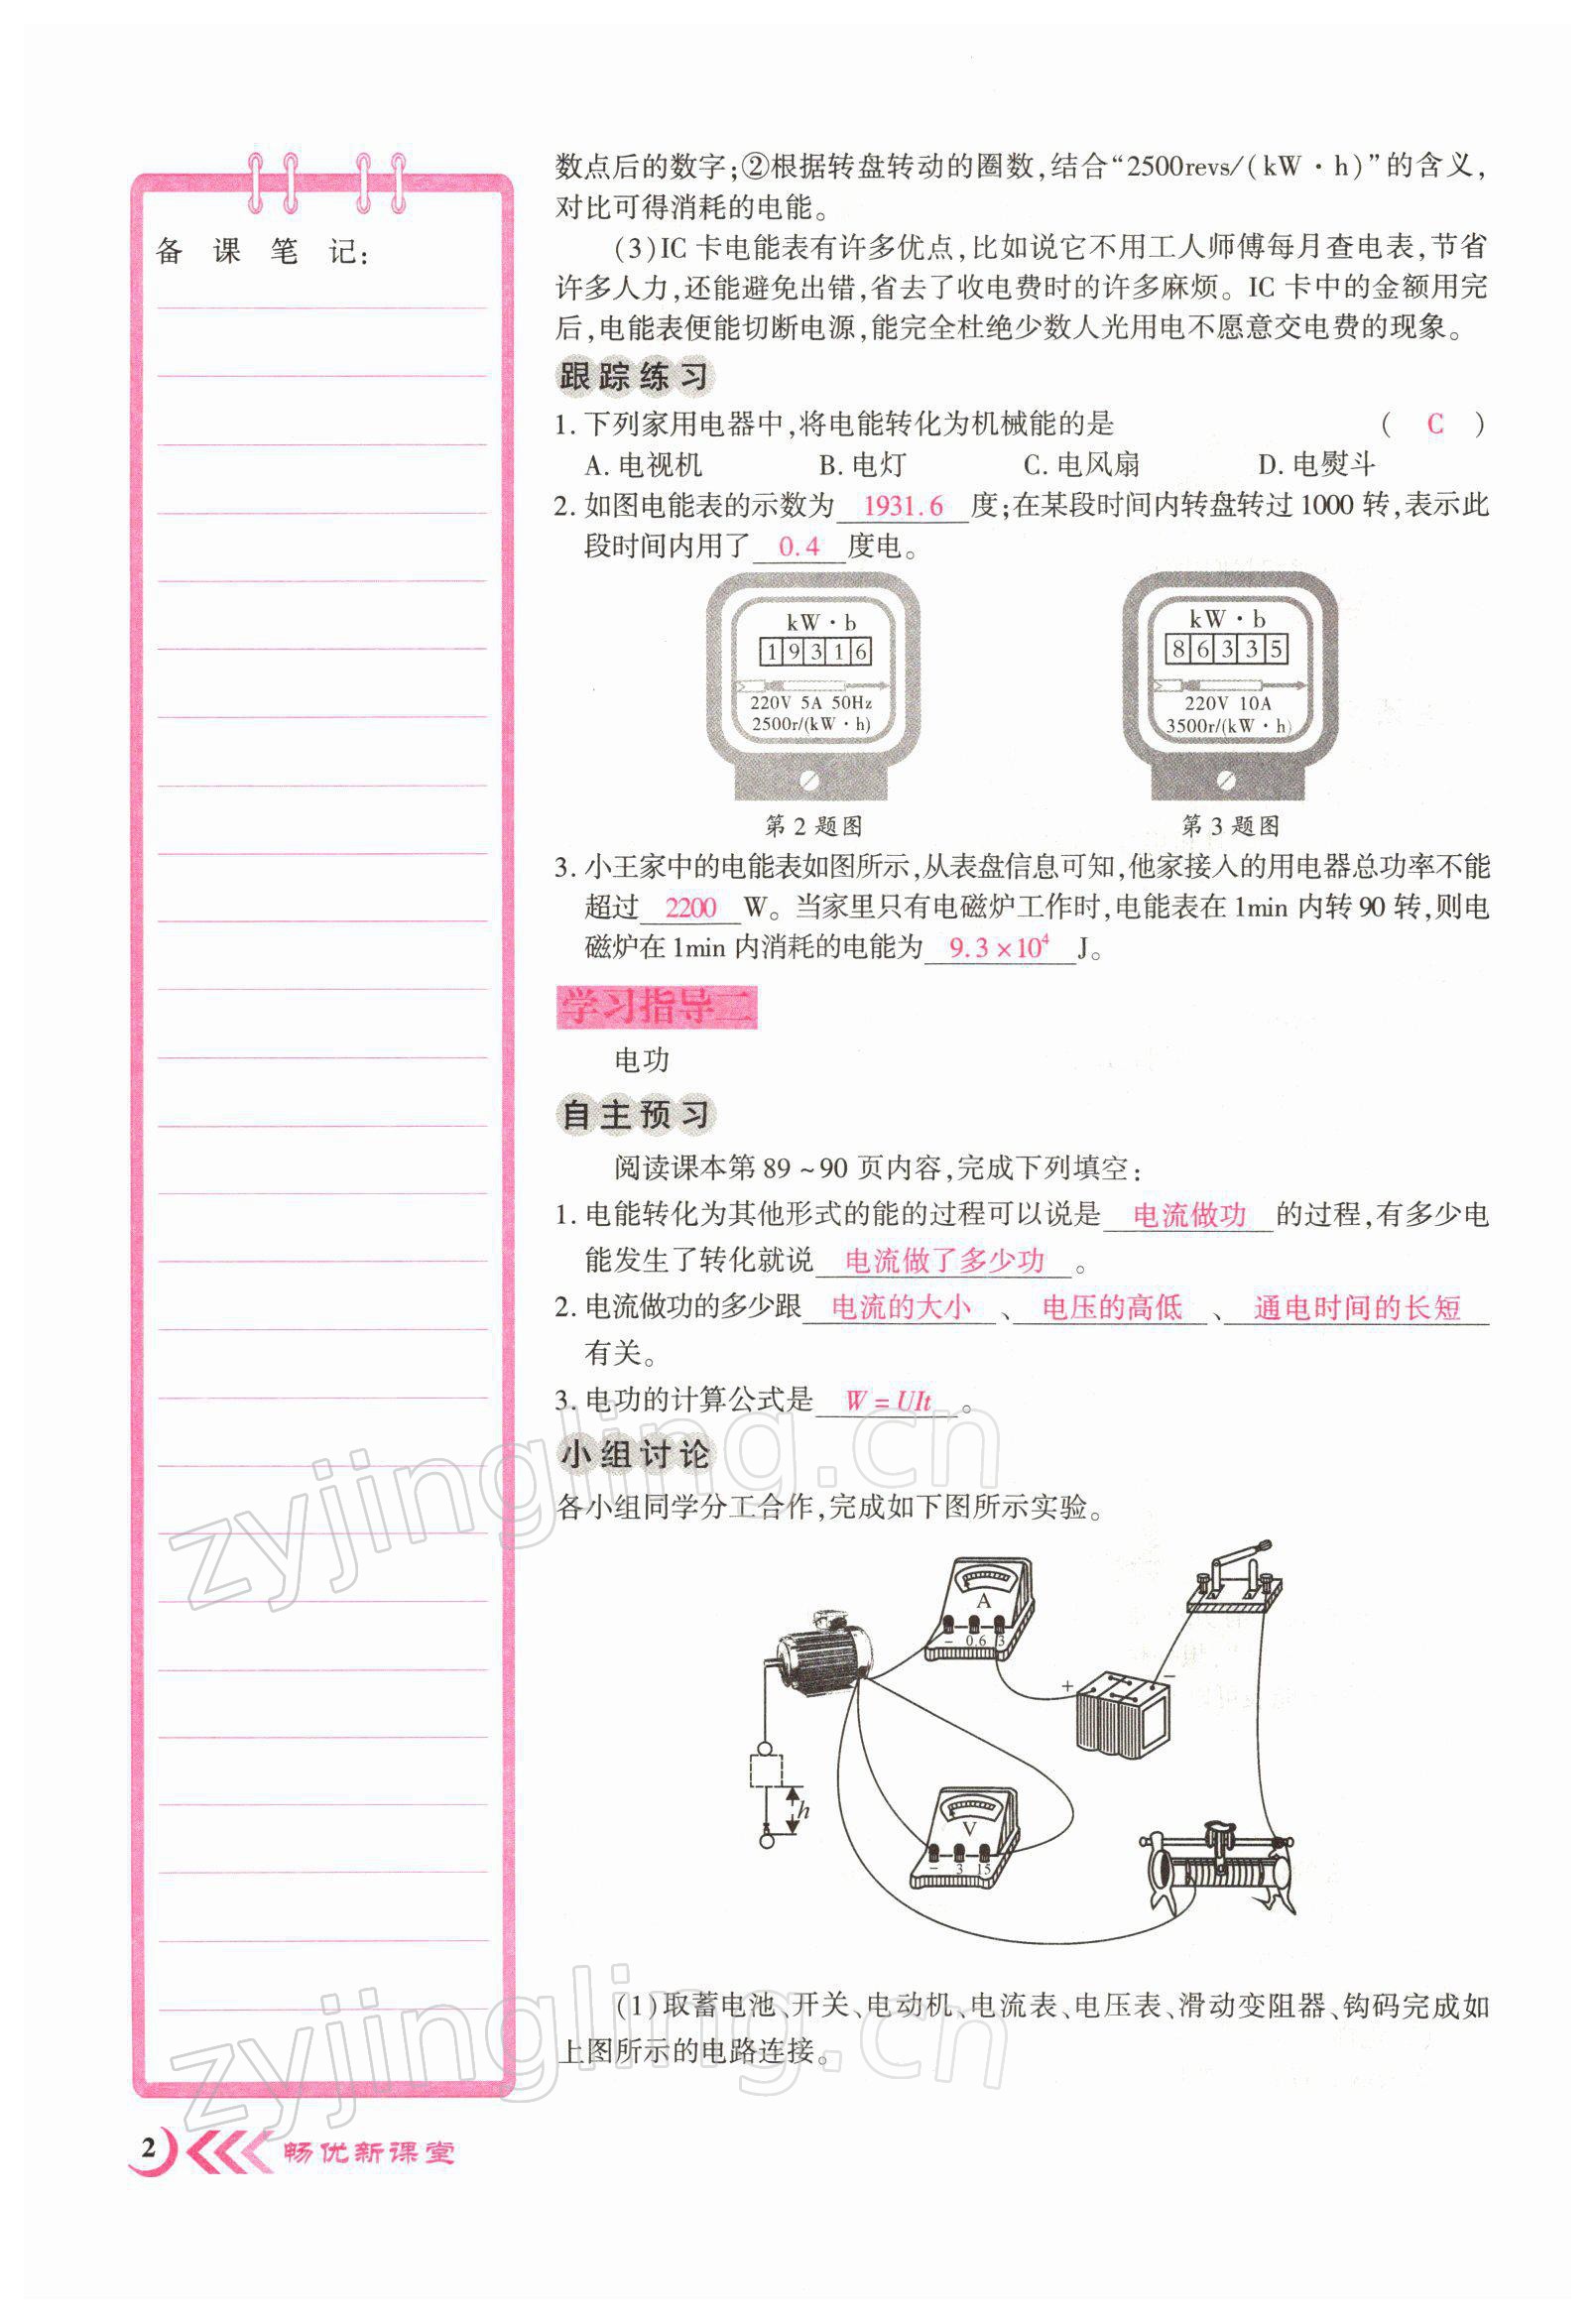 备 课 笔 记:
数点后的数字;②根据转盘转动的圈数,结合“2500revs/(kW·h)”的含义,
对比可得消耗的电能。
(3)IC 卡电能表有许多优点,比如说它不用工人师傅每月查电表,节省
许多人力,还能避免出错,省去了收电费时的许多麻烦。IC 卡中的金额用完
后,电能表便能切断电源,能完全杜绝少数人光用电不愿意交电费的现象。
跟踪练习
1. 下列家用电器中,将电能转化为机械能的是 ( C )
A. 电视机 B. 电灯 C. 电风扇 D. 电熨斗
2. 如图电能表的示数为 1931.6 度;在某段时间内转盘转过 1000 转,表示此
段时间内用了 0.4 度电。
kW·b
1 9 3 1 6
220V 5A 50Hz
2500r/(kW·h)
第 2 题图
kW·b
8 6 3 3 5
220V 10A
3500r/(kW·h)
第 3 题图
3. 小王家中的电能表如图所示,从表盘信息可知,他家接入的用电器总功率不能
超过 2200 W。当家里只有电磁炉工作时,电能表在 1min 内转 90 转,则电
磁炉在 1min 内消耗的电能为 9.3×10⁴ J。
学习指导二
电功
自主预习
阅读课本第 89~90 页内容,完成下列填空:
1. 电能转化为其他形式的能的过程可以说是 电流做功 的过程,有多少电
能发生了转化就说 电流做了多少功 。
2. 电流做功的多少跟 电流的大小 、 电压的高低 、 通电时间的长短
有关。
3. 电功的计算公式是 W=UIt 。
小组讨论
各小组同学分工合作,完成如下图所示实验。
A
- 0.6 3
+ -
h
V
- 3 15
(1)取蓄电池、开关、电动机、电流表、电压表、滑动变阻器、钩码完成如
上图所示的电路连接。
zyjingling.cn
zyjingling.cn
2 畅优新课堂